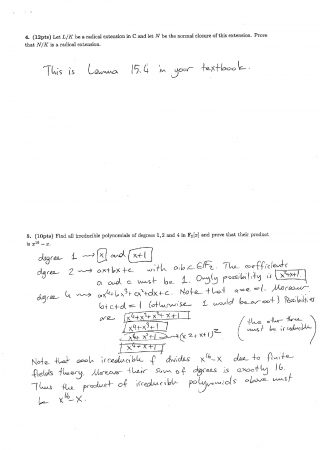 4. (12pts) Let L/K be a radical extension in C and let N be the normal closure of this extension. Prove
that N/K is a radical extension.
This is Lemma 15.4 in your textbook.
5. (10pts) Find all irreducible polynomials of degrees 1, 2 and 4 in F₂[x] and prove that their product
is x¹⁶ − x.
degree 1 ⟿ x and x+1
degree 2 ⟿ ax²+bx+c with a,b,c ∈ F₂. The coefficients
a and c must be 1. Only possibility is x²+x+1
degree 4 ⟿ ax⁴+bx³+cx²+dx+e. Note that a=e=1. Moreover
b+c+d=1 (otherwise 1 would be a root) Possibilities
are x⁴+x³+x²+x+1
x⁴+x³+1
x⁴+x²+1 → (x²+x+1)²
x⁴+x+1
(thus other three
must be irreducible)
Note that each irreducible f divides x¹⁶-x due to finite
fields theory. Moreover their sum of degrees is exactly 16.
Thus the product of irreducible polynomials above must
be x¹⁶-x.